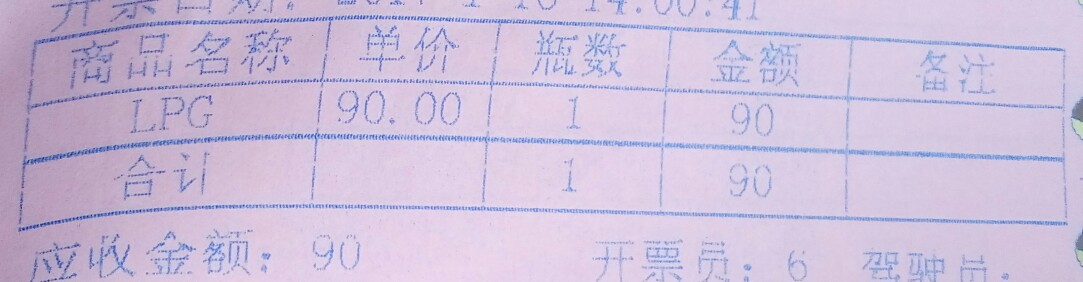 开票日期:
商品名称 单价 瓶数 金额 备注
LPG 90.00 1 90
合计 1 90
应收金额: 90 开票员: 6 驾驶员: